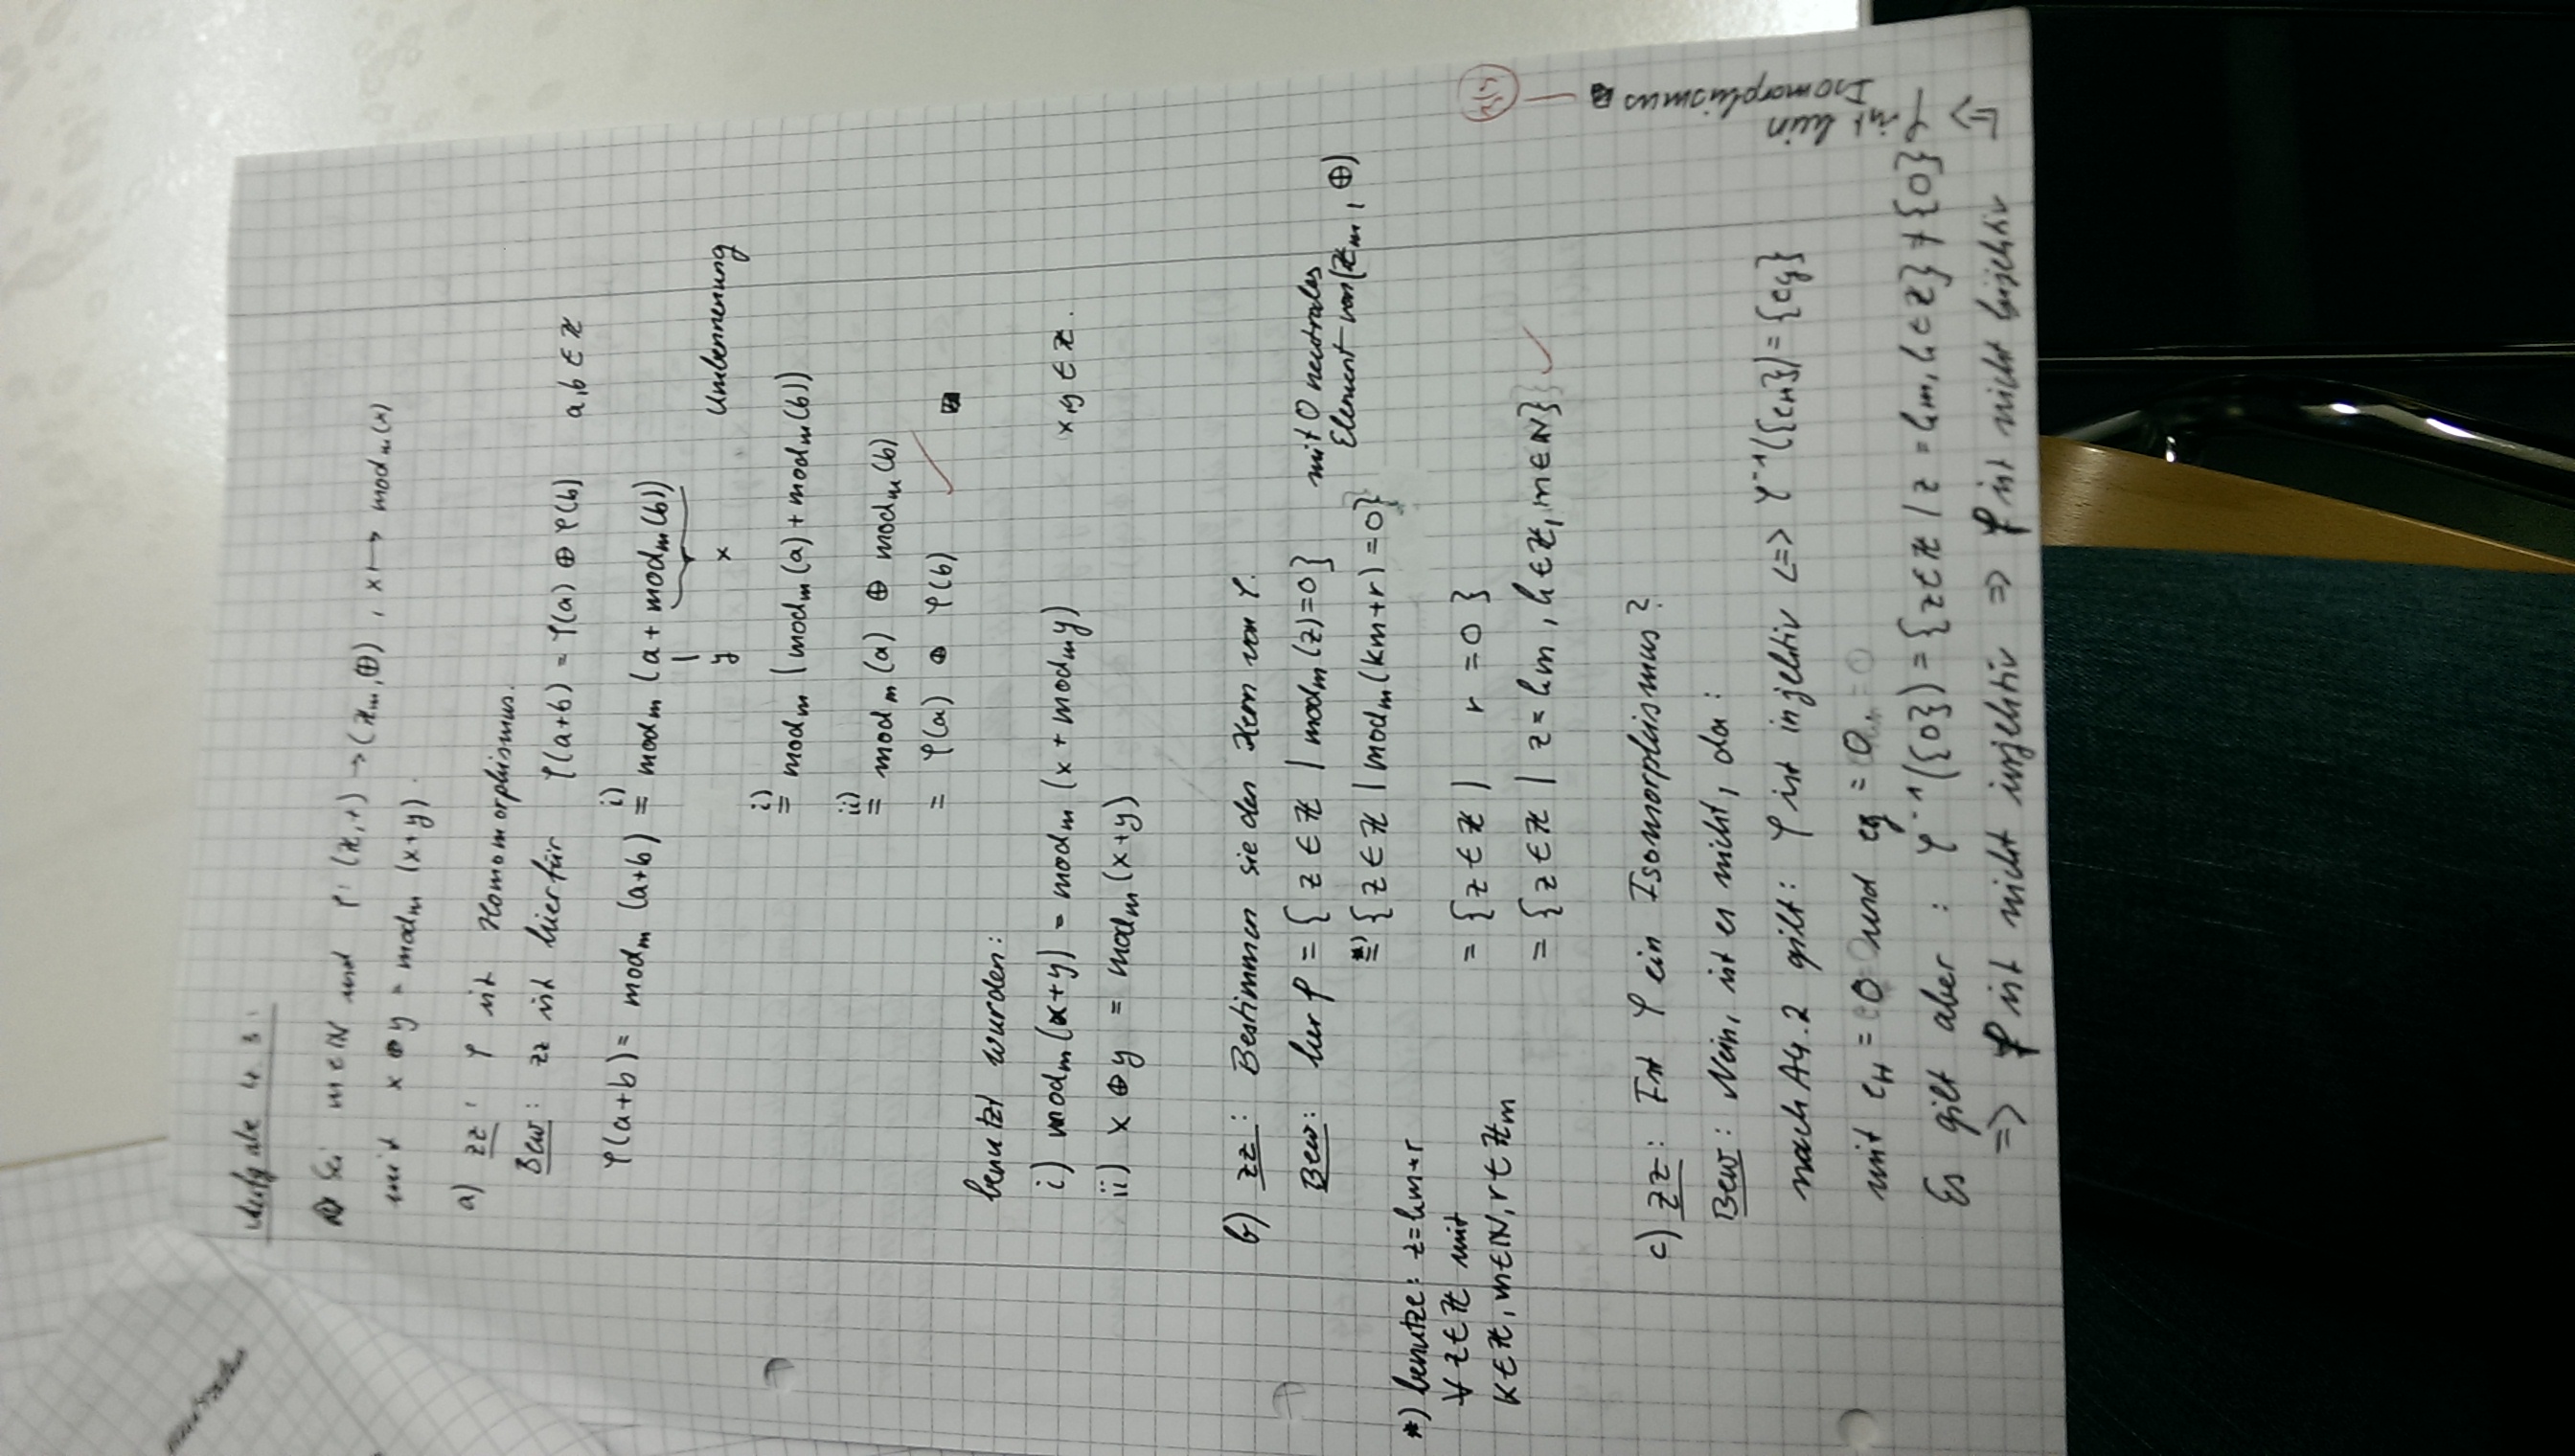 Aufgabe 4.3:
Sei m∈ℕ und φ: (ℤ,+) → (ℤₘ,⊕), x ↦ modₘ(x)
mit x⊕y = modₘ(x+y).
a) zz: φ ist Homomorphismus.
Bew: zz ist hierfür φ(a+b) = φ(a) ⊕ φ(b) a,b ∈ ℤ
φ(a+b) = modₘ(a+b) i)= modₘ(a + modₘ(b))
y x Umbennenung
i)= modₘ(modₘ(a) + modₘ(b))
ii)= modₘ(a) ⊕ modₘ(b)
= φ(a) ⊕ φ(b) ✓ ■
benutzt wurden:
i) modₘ(x+y) = modₘ(x + modₘy) x,y ∈ ℤ.
ii) x⊕y = modₘ(x+y)
b) zz: Bestimmen sie den Kern von φ.
Bew: ker φ = {z∈ℤ | modₘ(z)=0} mit 0 neutrales
Element von (ℤₘ, ⊕)
*)= {z∈ℤ | modₘ(km+r)=0}
= {z∈ℤ | r=0}
= {z∈ℤ | z=km, k∈ℤ, m∈ℕ} ✓
*) benutze: z=km+r
∀z∈ℤ mit
k∈ℤ, m∈ℕ, r∈ℤₘ
c) zz: Ist φ ein Isomorphismus?
Bew: Nein, ist es nicht, da:
nach A4.2 gilt: φ ist injektiv <=> φ⁻¹({e_H}) = {e_G}
mit e_H = 0 und e_G = 0
Es gilt aber: φ⁻¹({0}) = {z∈ℤ | z=km, k∈ℤ} ≠ {0}
=> φ ist nicht injektiv => φ ist nicht bijektiv
=> φ ist kein
Isomorphismus ■